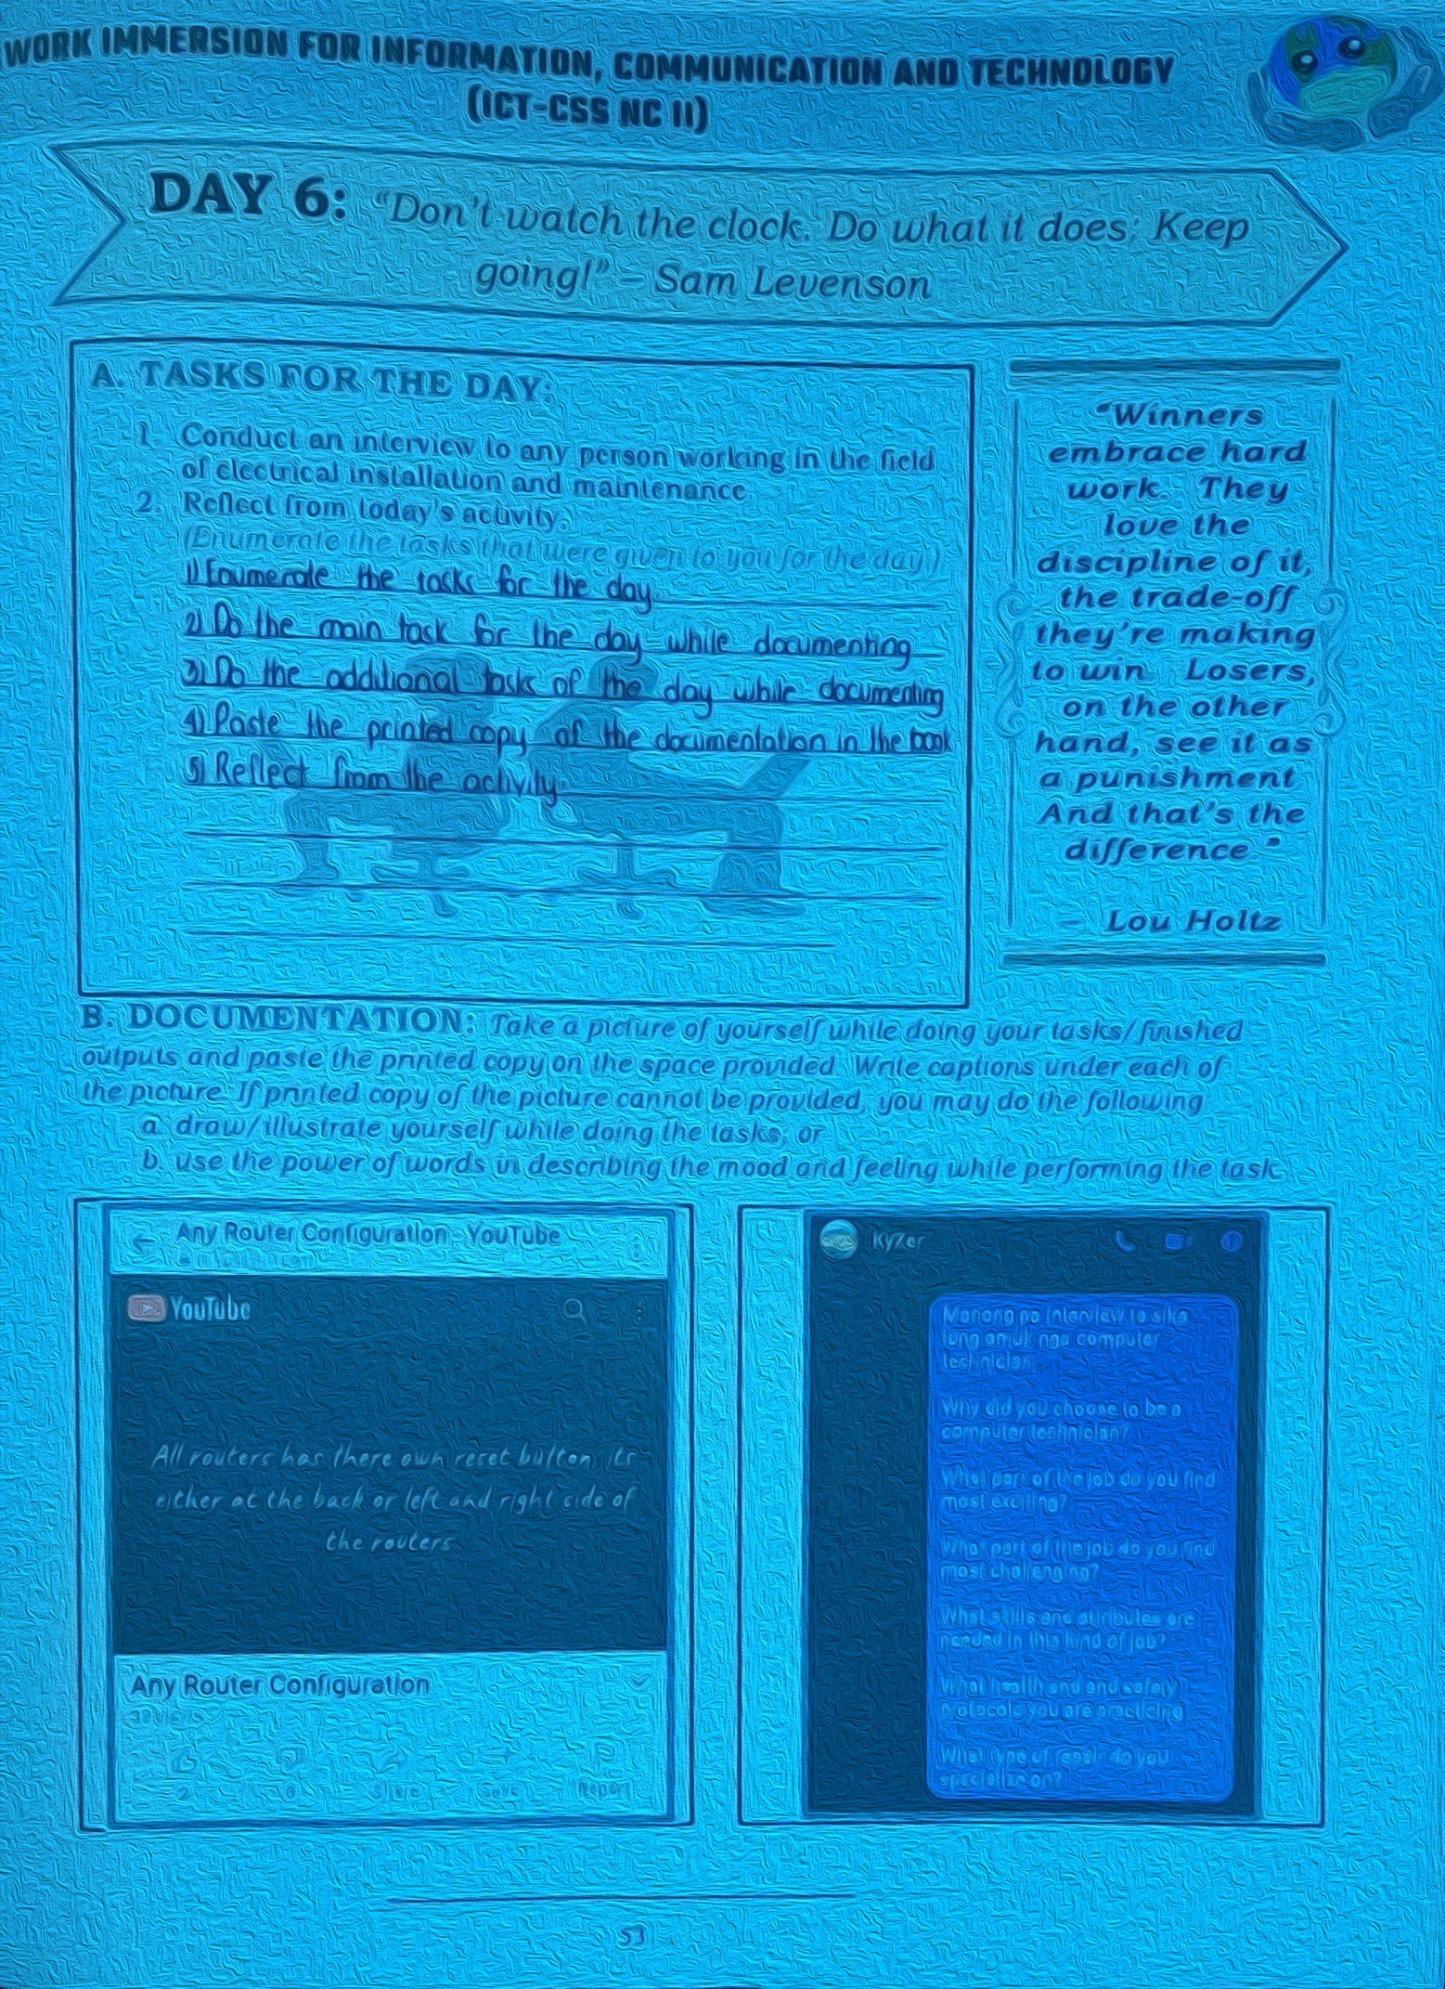 WORK IMMERSION FOR INFORMATION, COMMUNICATION AND TECHNOLOGY
(ICT-CSS NC II)
DAY 6: "Don't watch the clock. Do what it does: Keep
going!" – Sam Levenson
A. TASKS FOR THE DAY:
1. Conduct an interview to any person working in the field
of electrical installation and maintenance
2. Reflect from today's activity.
(Enumerate the tasks that were given to you for the day.)
1) Enumerate the tasks for the day.
2) Do the main task for the day while documenting
3) Do the additional tasks of the day while documenting
4) Paste the printed copy of the documentation in the book
5) Reflect from the activity.
"Winners
embrace hard
work. They
love the
discipline of it,
the trade-off
they're making
to win. Losers,
on the other
hand, see it as
a punishment
And that's the
difference"
– Lou Holtz
B. DOCUMENTATION: Take a picture of yourself while doing your tasks/finished
outputs and paste the printed copy on the space provided. Write captions under each of
the picture. If printed copy of the picture cannot be provided, you may do the following
a. draw/illustrate yourself while doing the tasks; or
b. use the power of words in describing the mood and feeling while performing the task.
← Any Router Configuration - YouTube
YouTube
All routers has there own reset button, its
either at the back or left and right side of
the routers
Any Router Configuration
2 0 Share Save Report
KyZer
Manong pa interview to sika
lung amuk nga computer
technician
Why did you choose to be a
computer technician?
What part of the job do you find
most exciting?
What part of the job do you find
most challenging?
What skills and attributes are
needed in this kind of job?
What health and and safety
protocols you are practicing
What type of repair do you
specialize on?
53